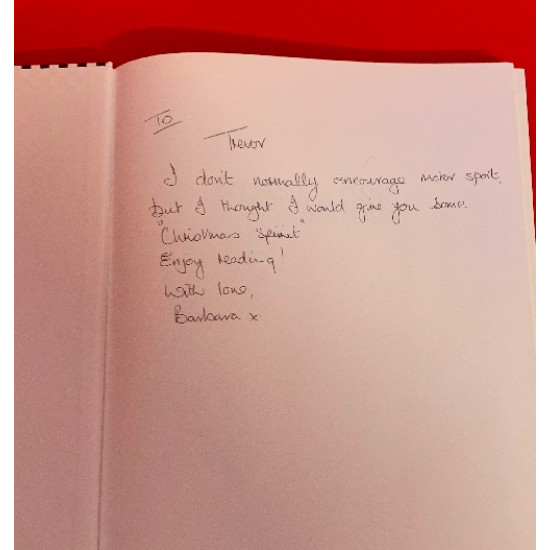 To
Trevor
I don't normally encourage motor sport,
but I thought I would give you some
"Christmas spirit"
Enjoy reading!
With love,
Barbara x